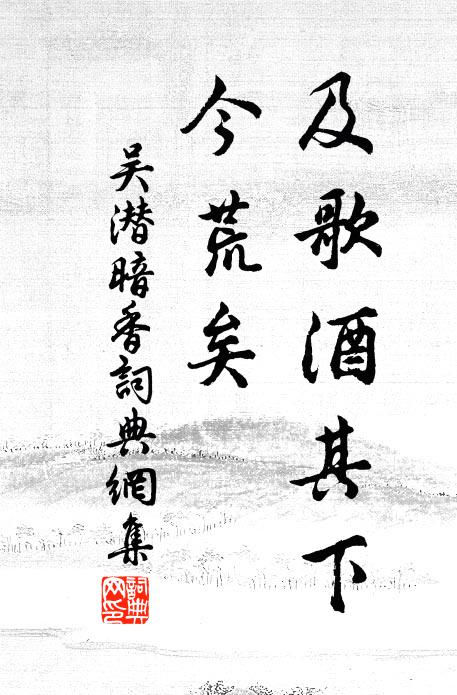 及歌酒其下
今荒矣
吴潜暗香詞典網集
詞典網印